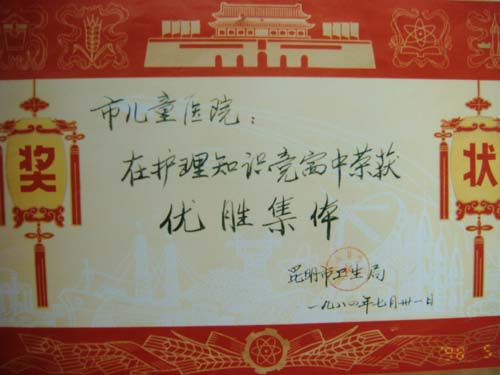 奖 状
市儿童医院：
在护理知识竞赛中荣获
优胜集体
昆明市卫生局
一九八四年七月卅一日